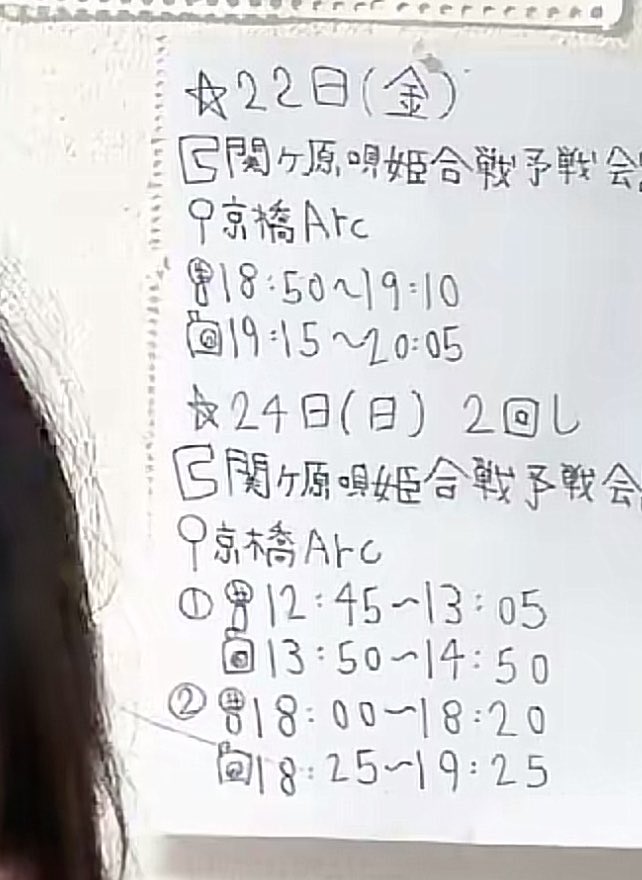 ☆22日(金)
関ヶ原唄姫合戦予戦会
京橋Arc
18:50~19:10
19:15~20:05
☆24日(日) 2回し
関ヶ原唄姫合戦予戦会
京橋Arc
① 12:45~13:05
13:50~14:50
② 18:00~18:20
18:25~19:25